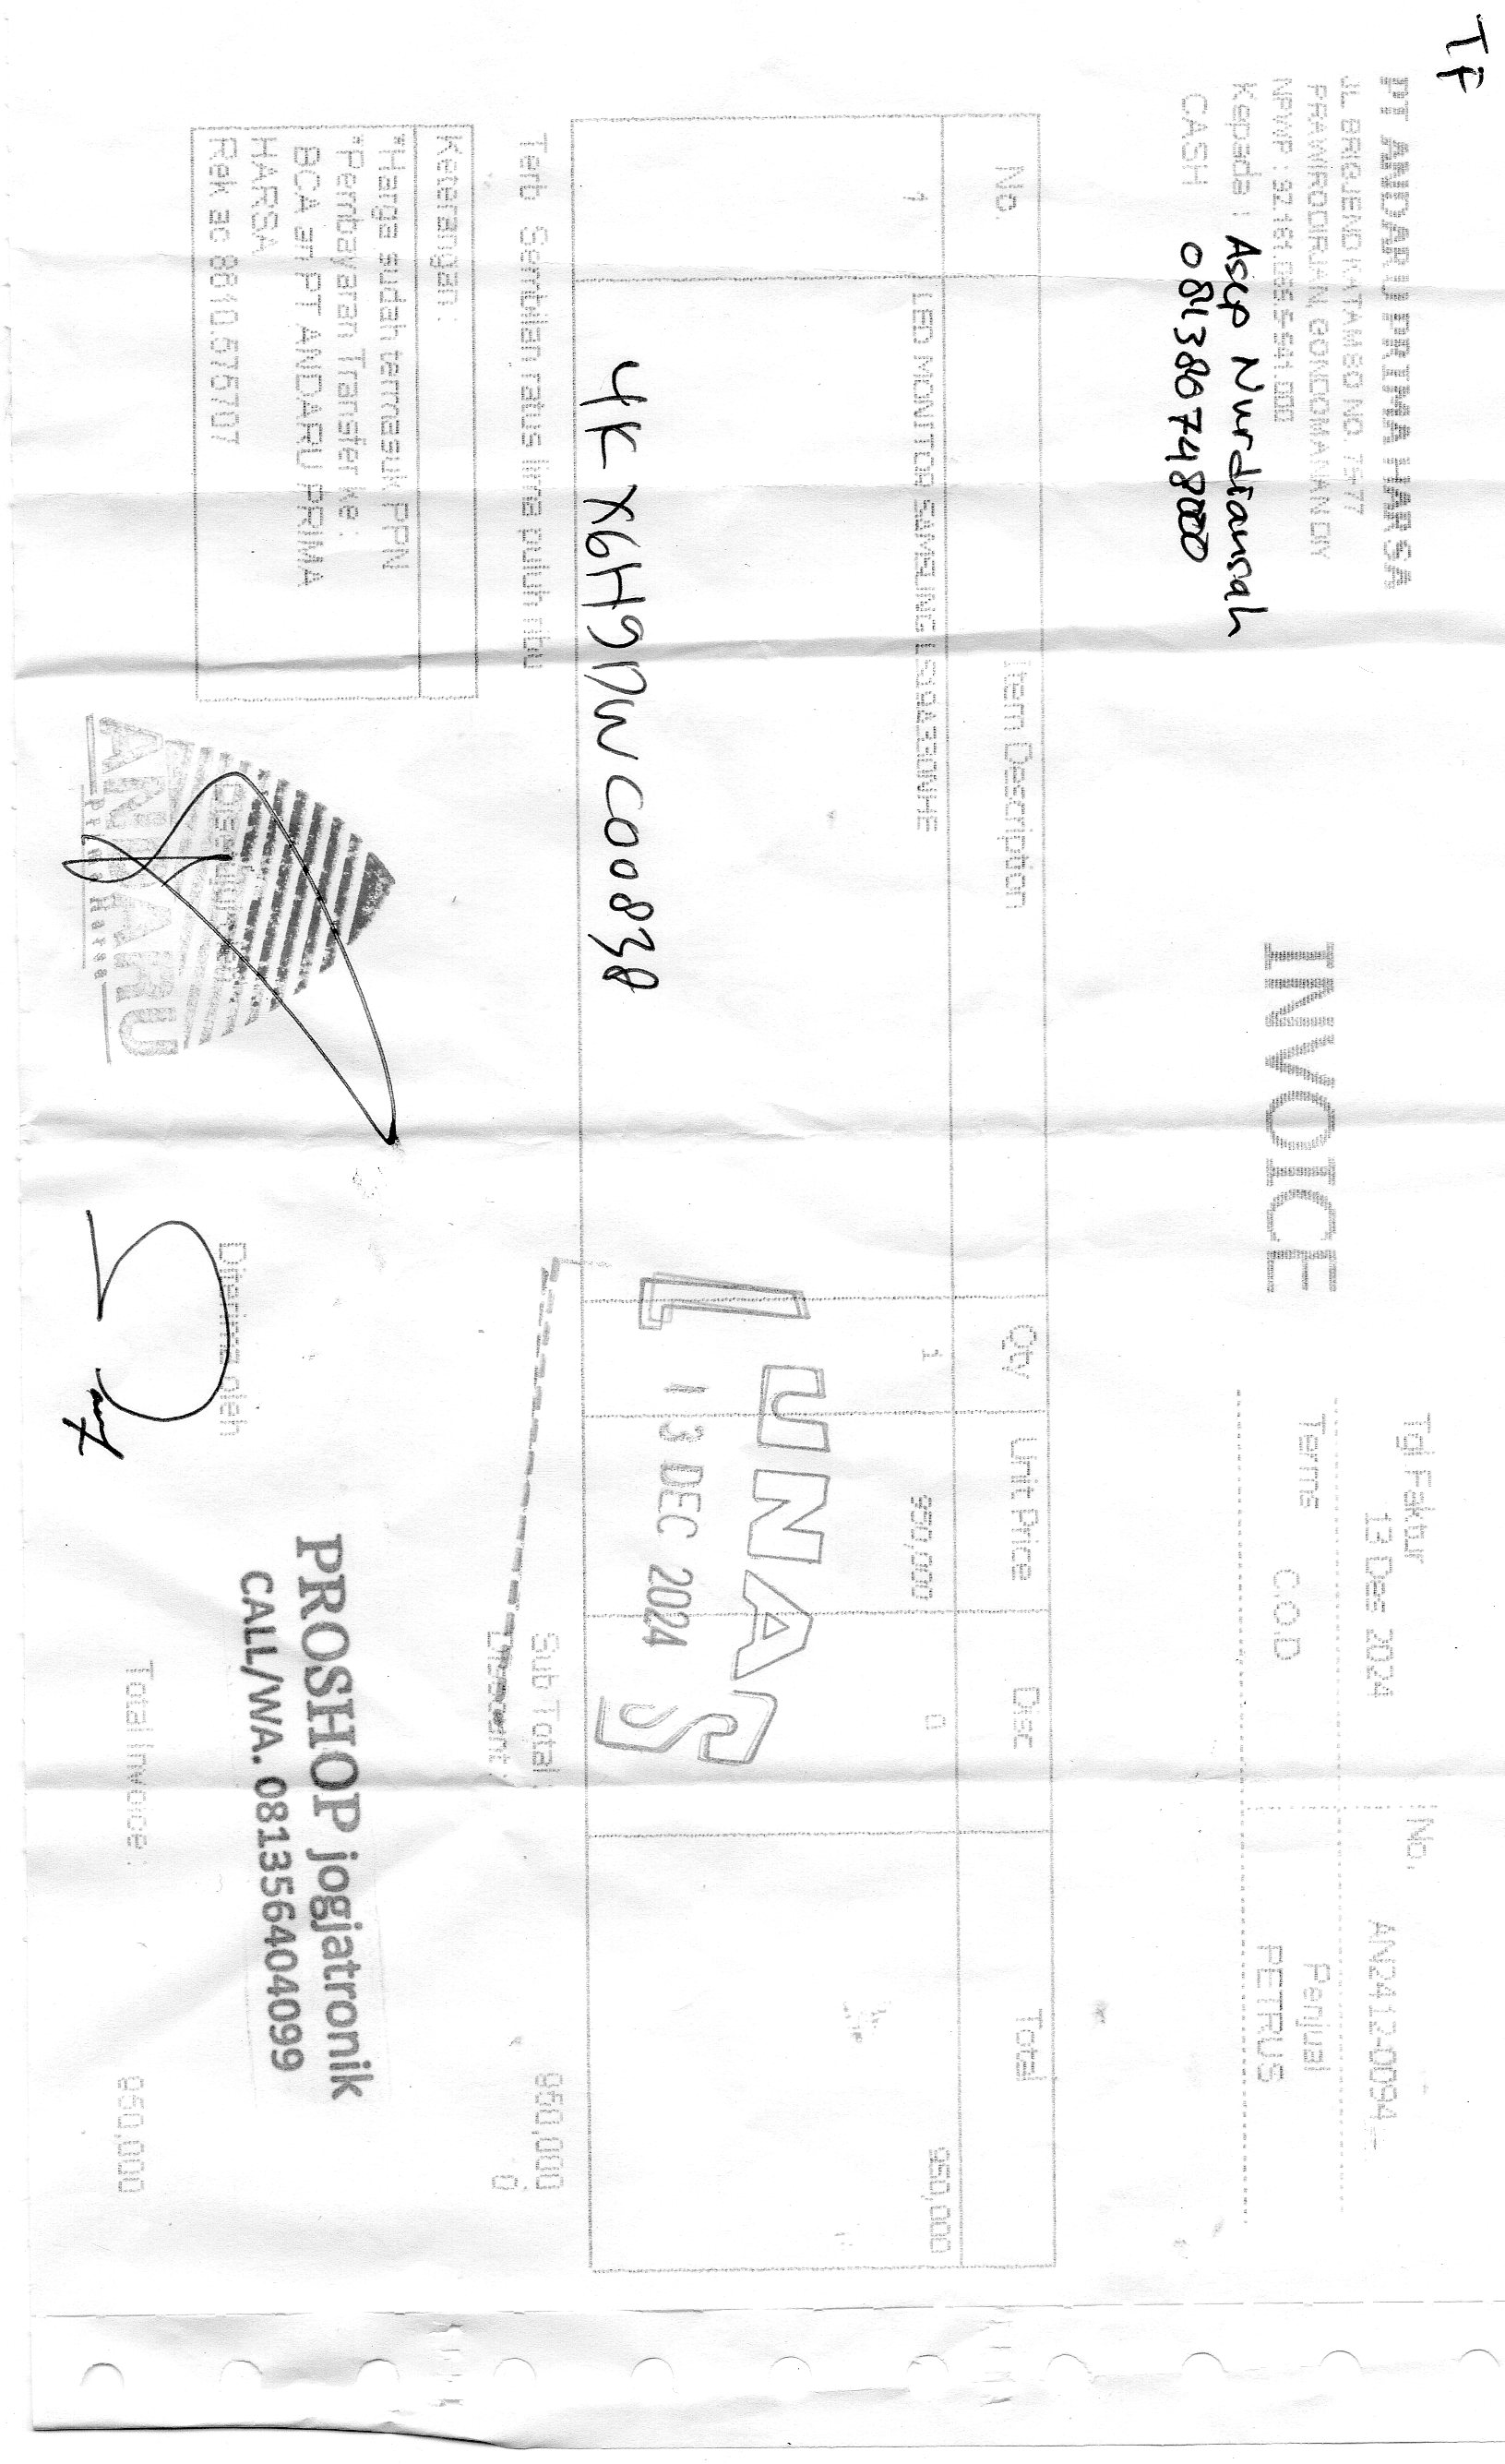 TF
PT ANDARU PRIMA HARSA
JL. BRIGJEND KATAMSO NO. 75-77
PRAWIRODIRJAN, GONDOMANAN DIY
NPWP :
Kepada : Asep Nurdiansah
CASH 081380748000
INVOICE
Tgl Faktur
13 Dec 2024
No.
AN2412-0094
Terms
C.O.D
Penjual
PETRUS
No. Item Description Qty Unit Price Disc Total
1 LED MONITOR SAMSUNG 1 950,000 0 950,000
LUNAS
13 DEC 2024
4KX6H9DWC00838
Terb Sembilan ratus lima puluh ribu
Sub Total : 950,000
Discount : 0
Keterangan :
*Harga sudah termasuk PPN
*Pembayaran Transfer ke :
BCA an PT ANDARU PRIMA
HARSA
Rek ac
Disetujui oleh
ANDARU
Prima Harsa
Diterima oleh
PROSHOP jogjatronik
CALL/WA. 081356404099
Total Invoice : 950,000